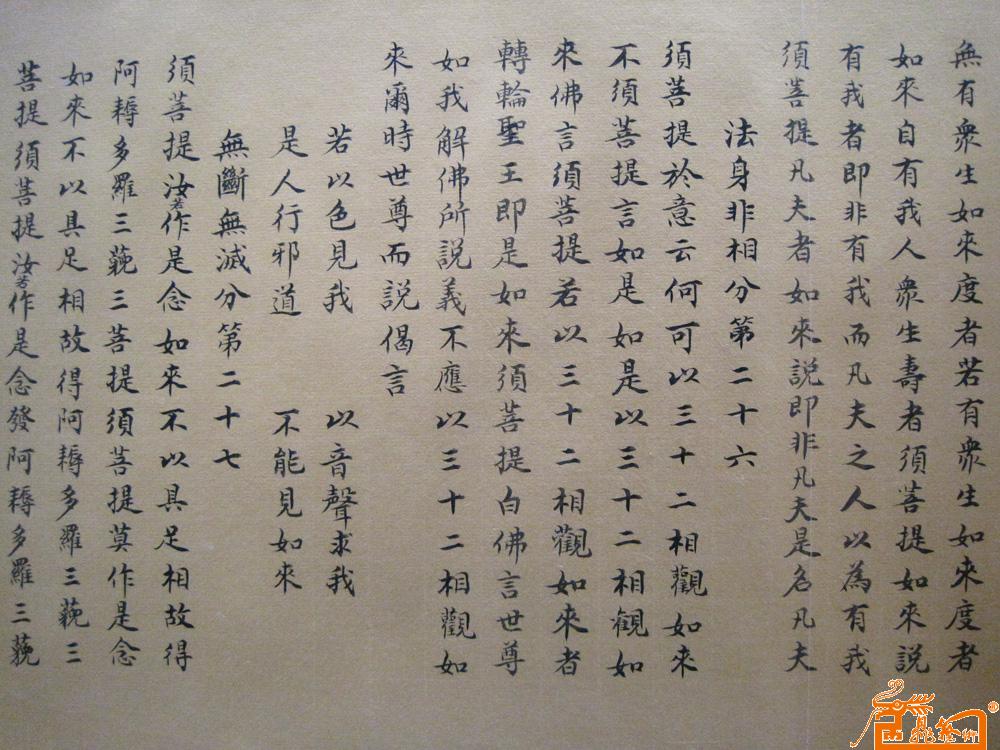 無有衆生如來度者若有衆生如來度者
如來自有我人衆生壽者須菩提如來説
有我者即非有我而凡夫之人以為有我
須菩提凡夫者如來説即非凡夫是名凡夫
法身非相分第二十六
須菩提於意云何可以三十二相觀如來
不須菩提言如是如是以三十二相觀如
來佛言須菩提若以三十二相觀如來者
轉輪聖王即是如來須菩提白佛言世尊
如我解佛所説義不應以三十二相觀如
來爾時世尊而説偈言
若以色見我 以音聲求我
是人行邪道 不能見如來
無斷無滅分第二十七
須菩提汝若作是念如來不以具足相故得
阿耨多羅三藐三菩提須菩提莫作是念
如來不以具足相故得阿耨多羅三藐三
菩提須菩提汝若作是念發阿耨多羅三藐